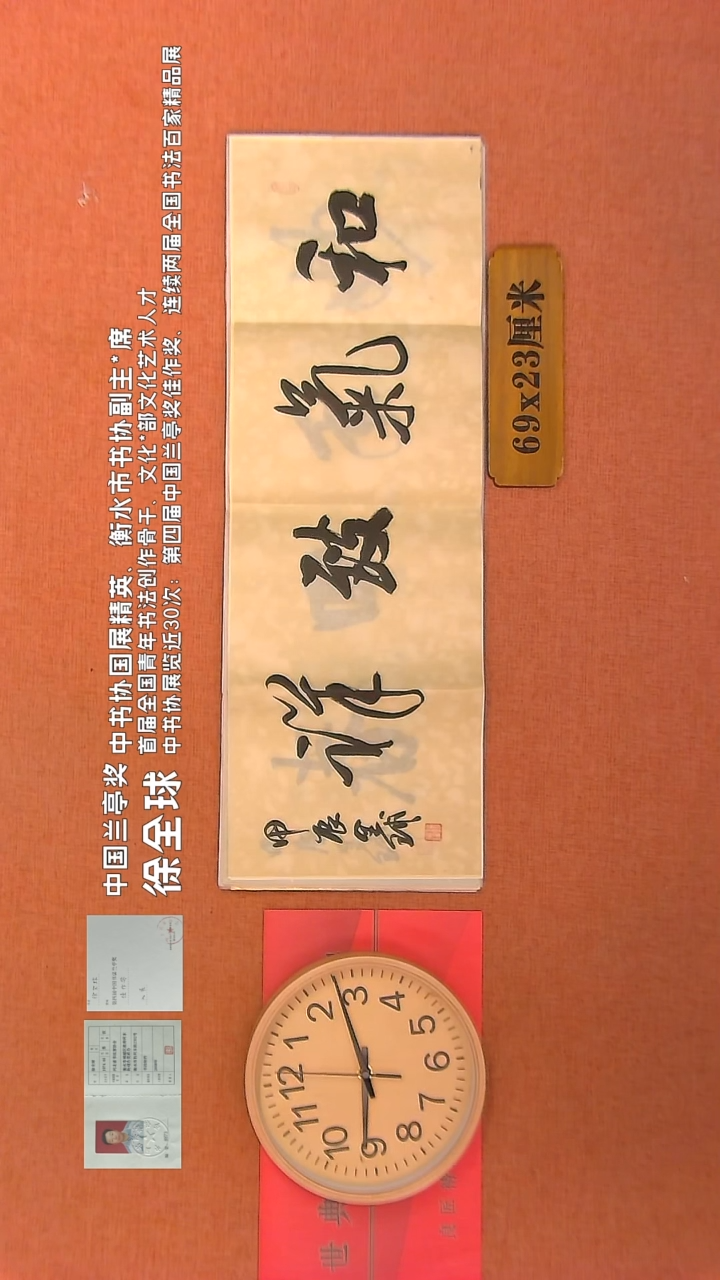 中国兰亭奖 中书协国展精英、衡水市书协副主*席
徐全球
首届全国青年书法创作骨干、文化*部文化艺术人才
中书协展览近30次：第四届中国兰亭奖佳作奖、连续两届全国书法百家精品展
和氣致祥
甲辰
69x23厘米
12
1
2
3
4
5
6
7
8
9
10
11
世典